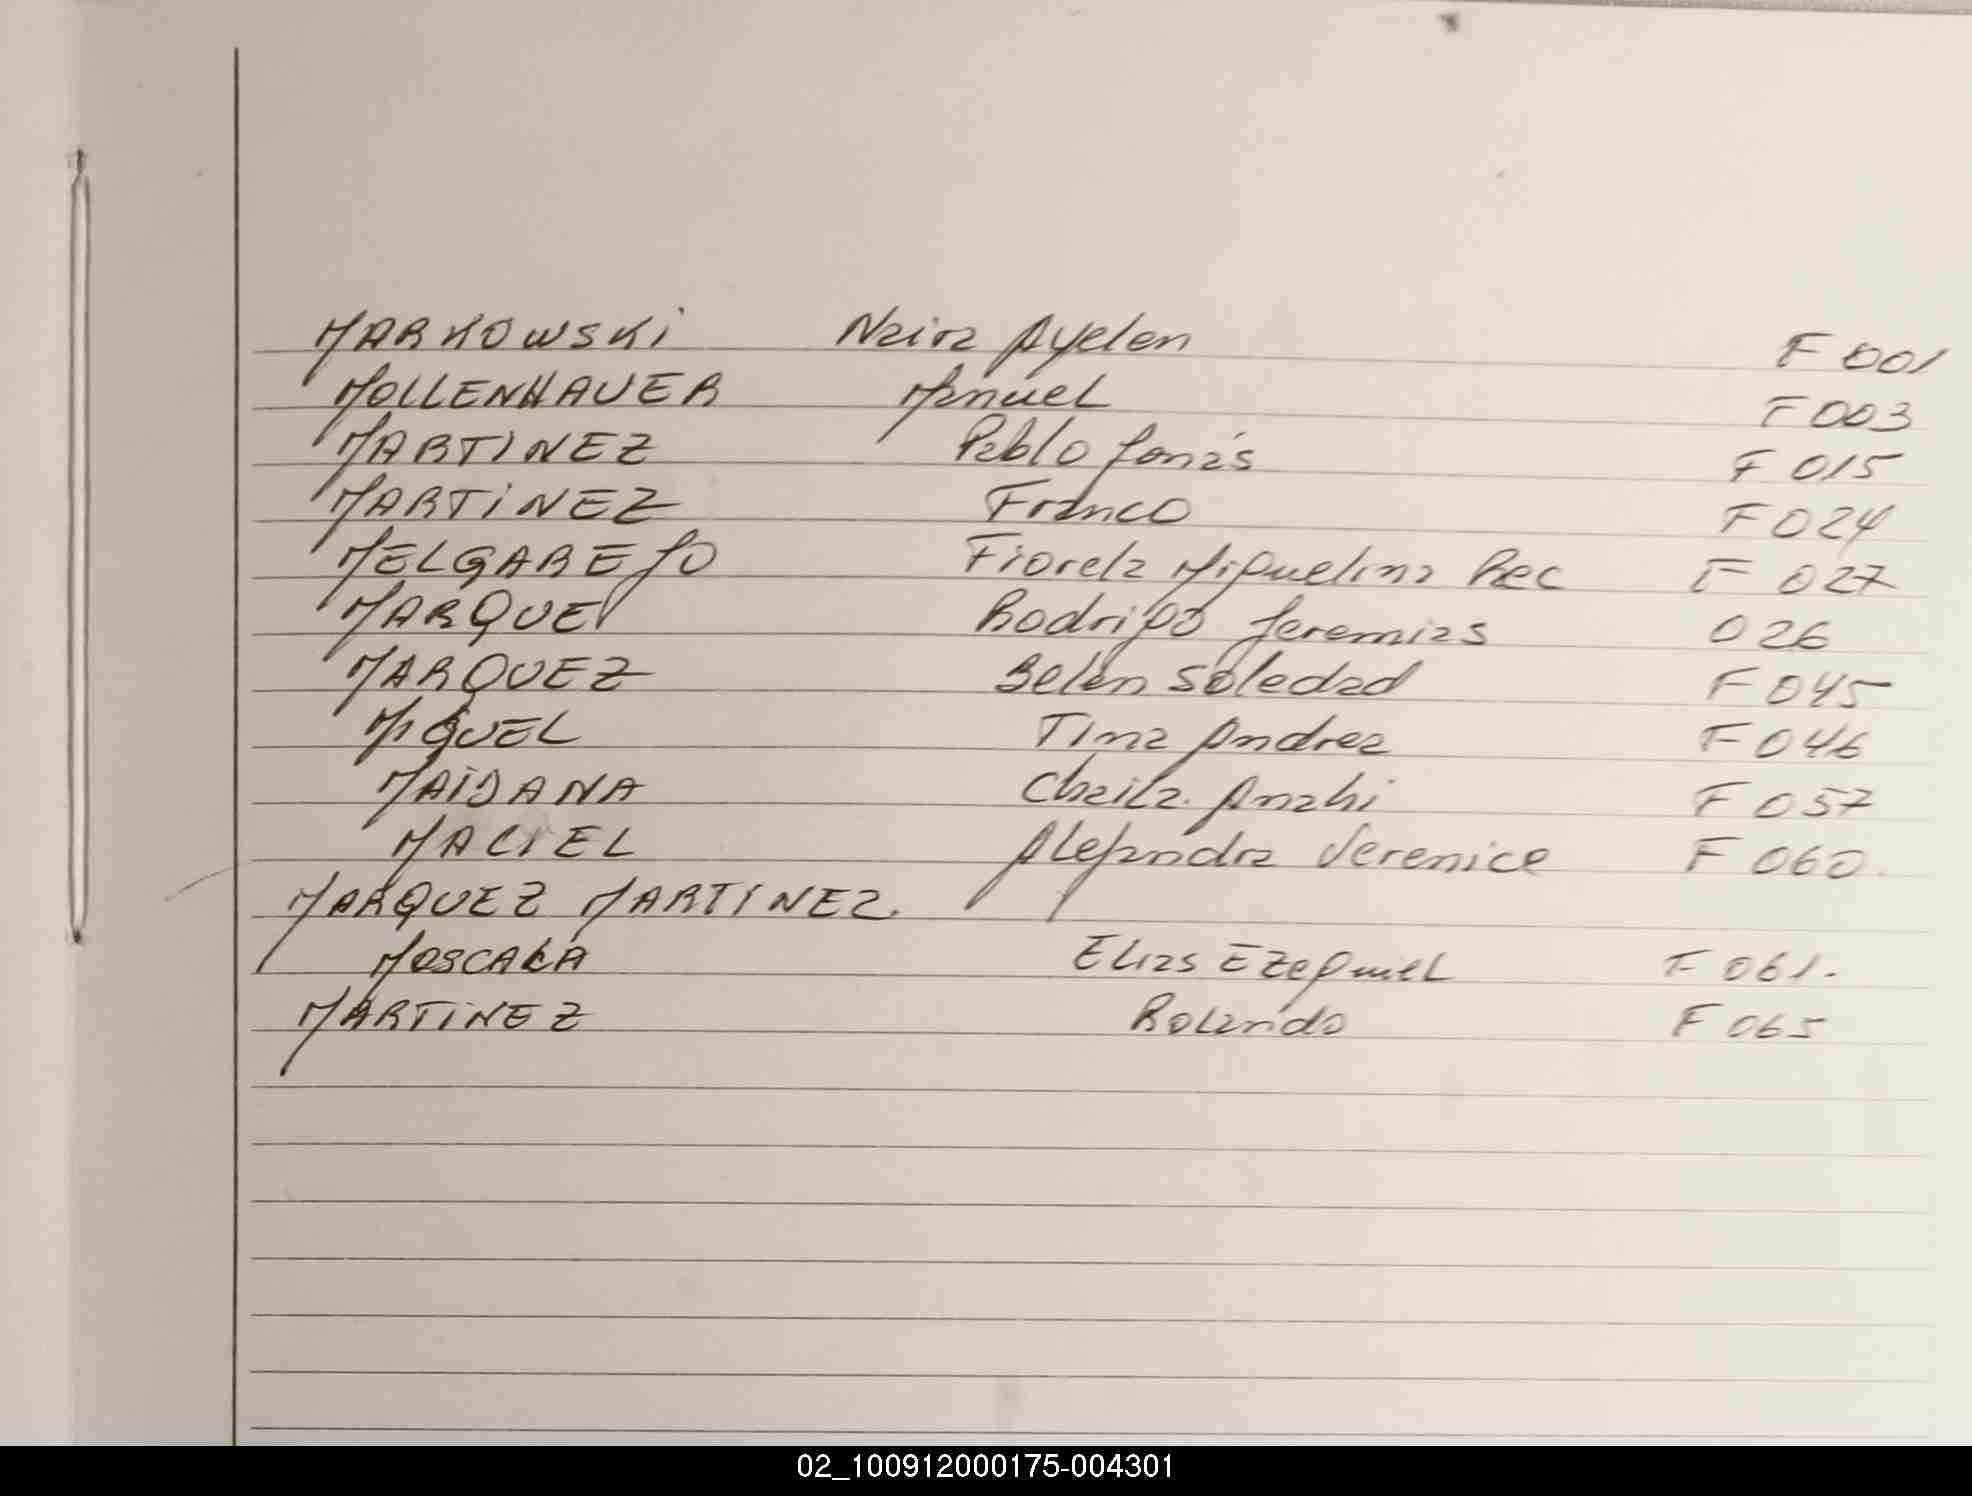 MARKOWSKI Naira Ayelen F 001
MOLLENHAUER Manuel F 003
MARTINEZ Pablo Jonás F 015
MARTINEZ Franco F 024
MELGAREJO Fiorela Miquelina Rec F 027
MARQUE Rodrigo Jeremias 026
MARQUEZ Belén Soledad F 045
MIGUEL Tina Andrea F 046
MAIDANA Cheila. Anahi F 057
MACIEL Alejandra Verenice F 060.
MARQUEZ MARTINEZ.
MOSCALA Elias Ezequiel F 061.
MARTINEZ Rolando F 065
02_100912000175-004301